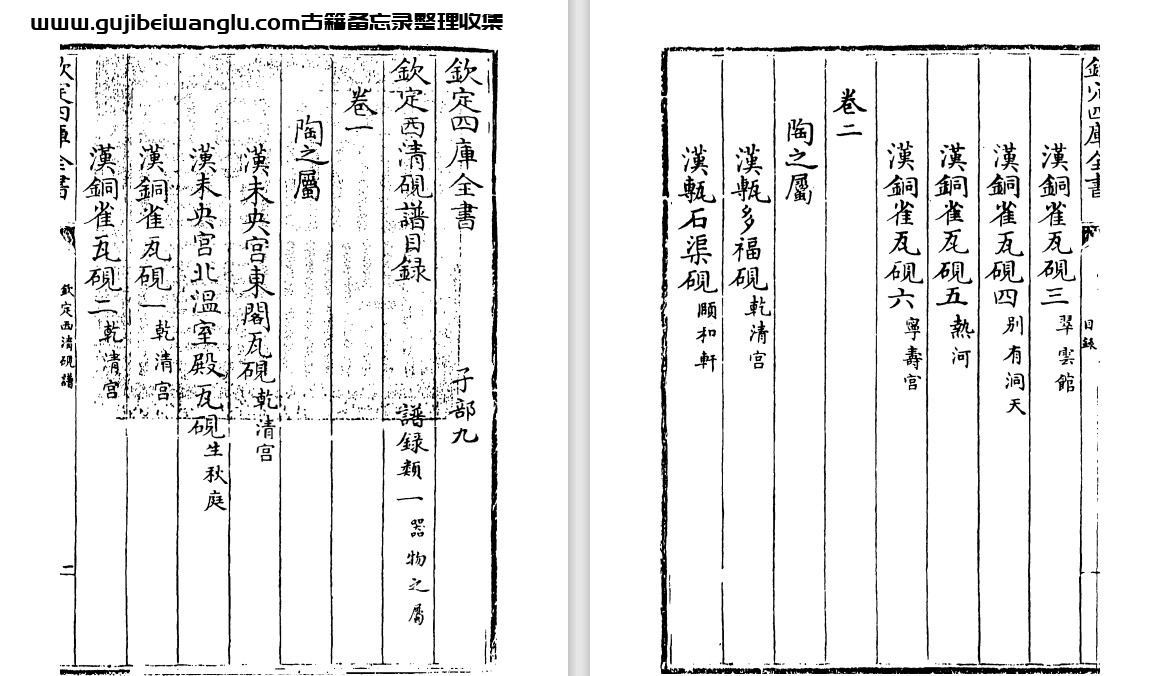 www.gujibeiwanglu.com古籍备忘录整理收集
欽定四庫全書 子部九
欽定西清硯譜目録 譜録類一 器物之屬
卷一
陶之屬
漢未央宫東閣瓦硯 乾清宫
漢未央宫北温室殿瓦硯 生秋庭
漢銅雀瓦硯一 乾清宫
漢銅雀瓦硯二 乾清宫
欽定四庫全書 欽定西清硯譜 二
欽定四庫全書 目録
漢銅雀瓦硯三 翠雲館
漢銅雀瓦硯四 别有洞天
漢銅雀瓦硯五 熱河
漢銅雀瓦硯六 寧壽宫
卷二
陶之屬
漢甎多福硯 乾清宫
漢甎石渠硯 頤和軒